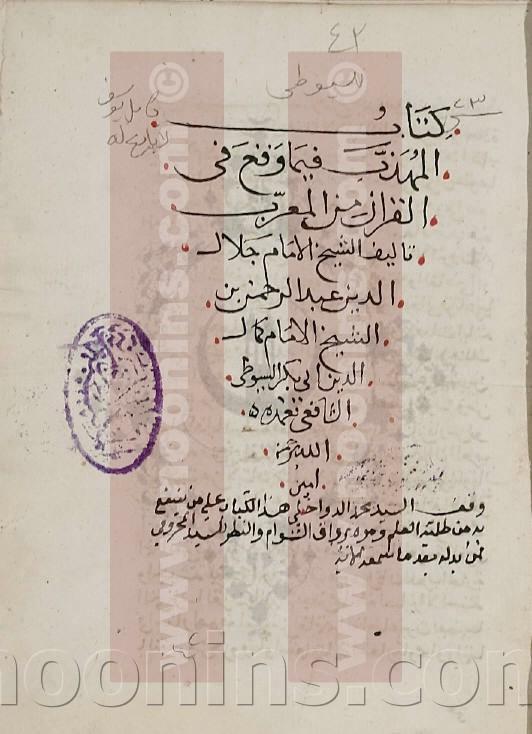 ٤٢
للسيوطي
كتاب
المهذب فيما وقع في
القران من المعرب
تاليف الشيخ الامام جلال
الدين عبد الرحمن بن
الشيخ الامام كمال
الدين ابي بكر السيوطي
الشافعي تغمده
الله برحمته
امين
وقف السيد محمد الدواخلي هذا الكتاب علي من ينتفع
به من طلبة العلم ومقره برواق الشوام والنظر للسيد المحروقي
فمن بدله بعد ما سمعه
moonins.com
www.moonins.com ©
www.moonins.com ©